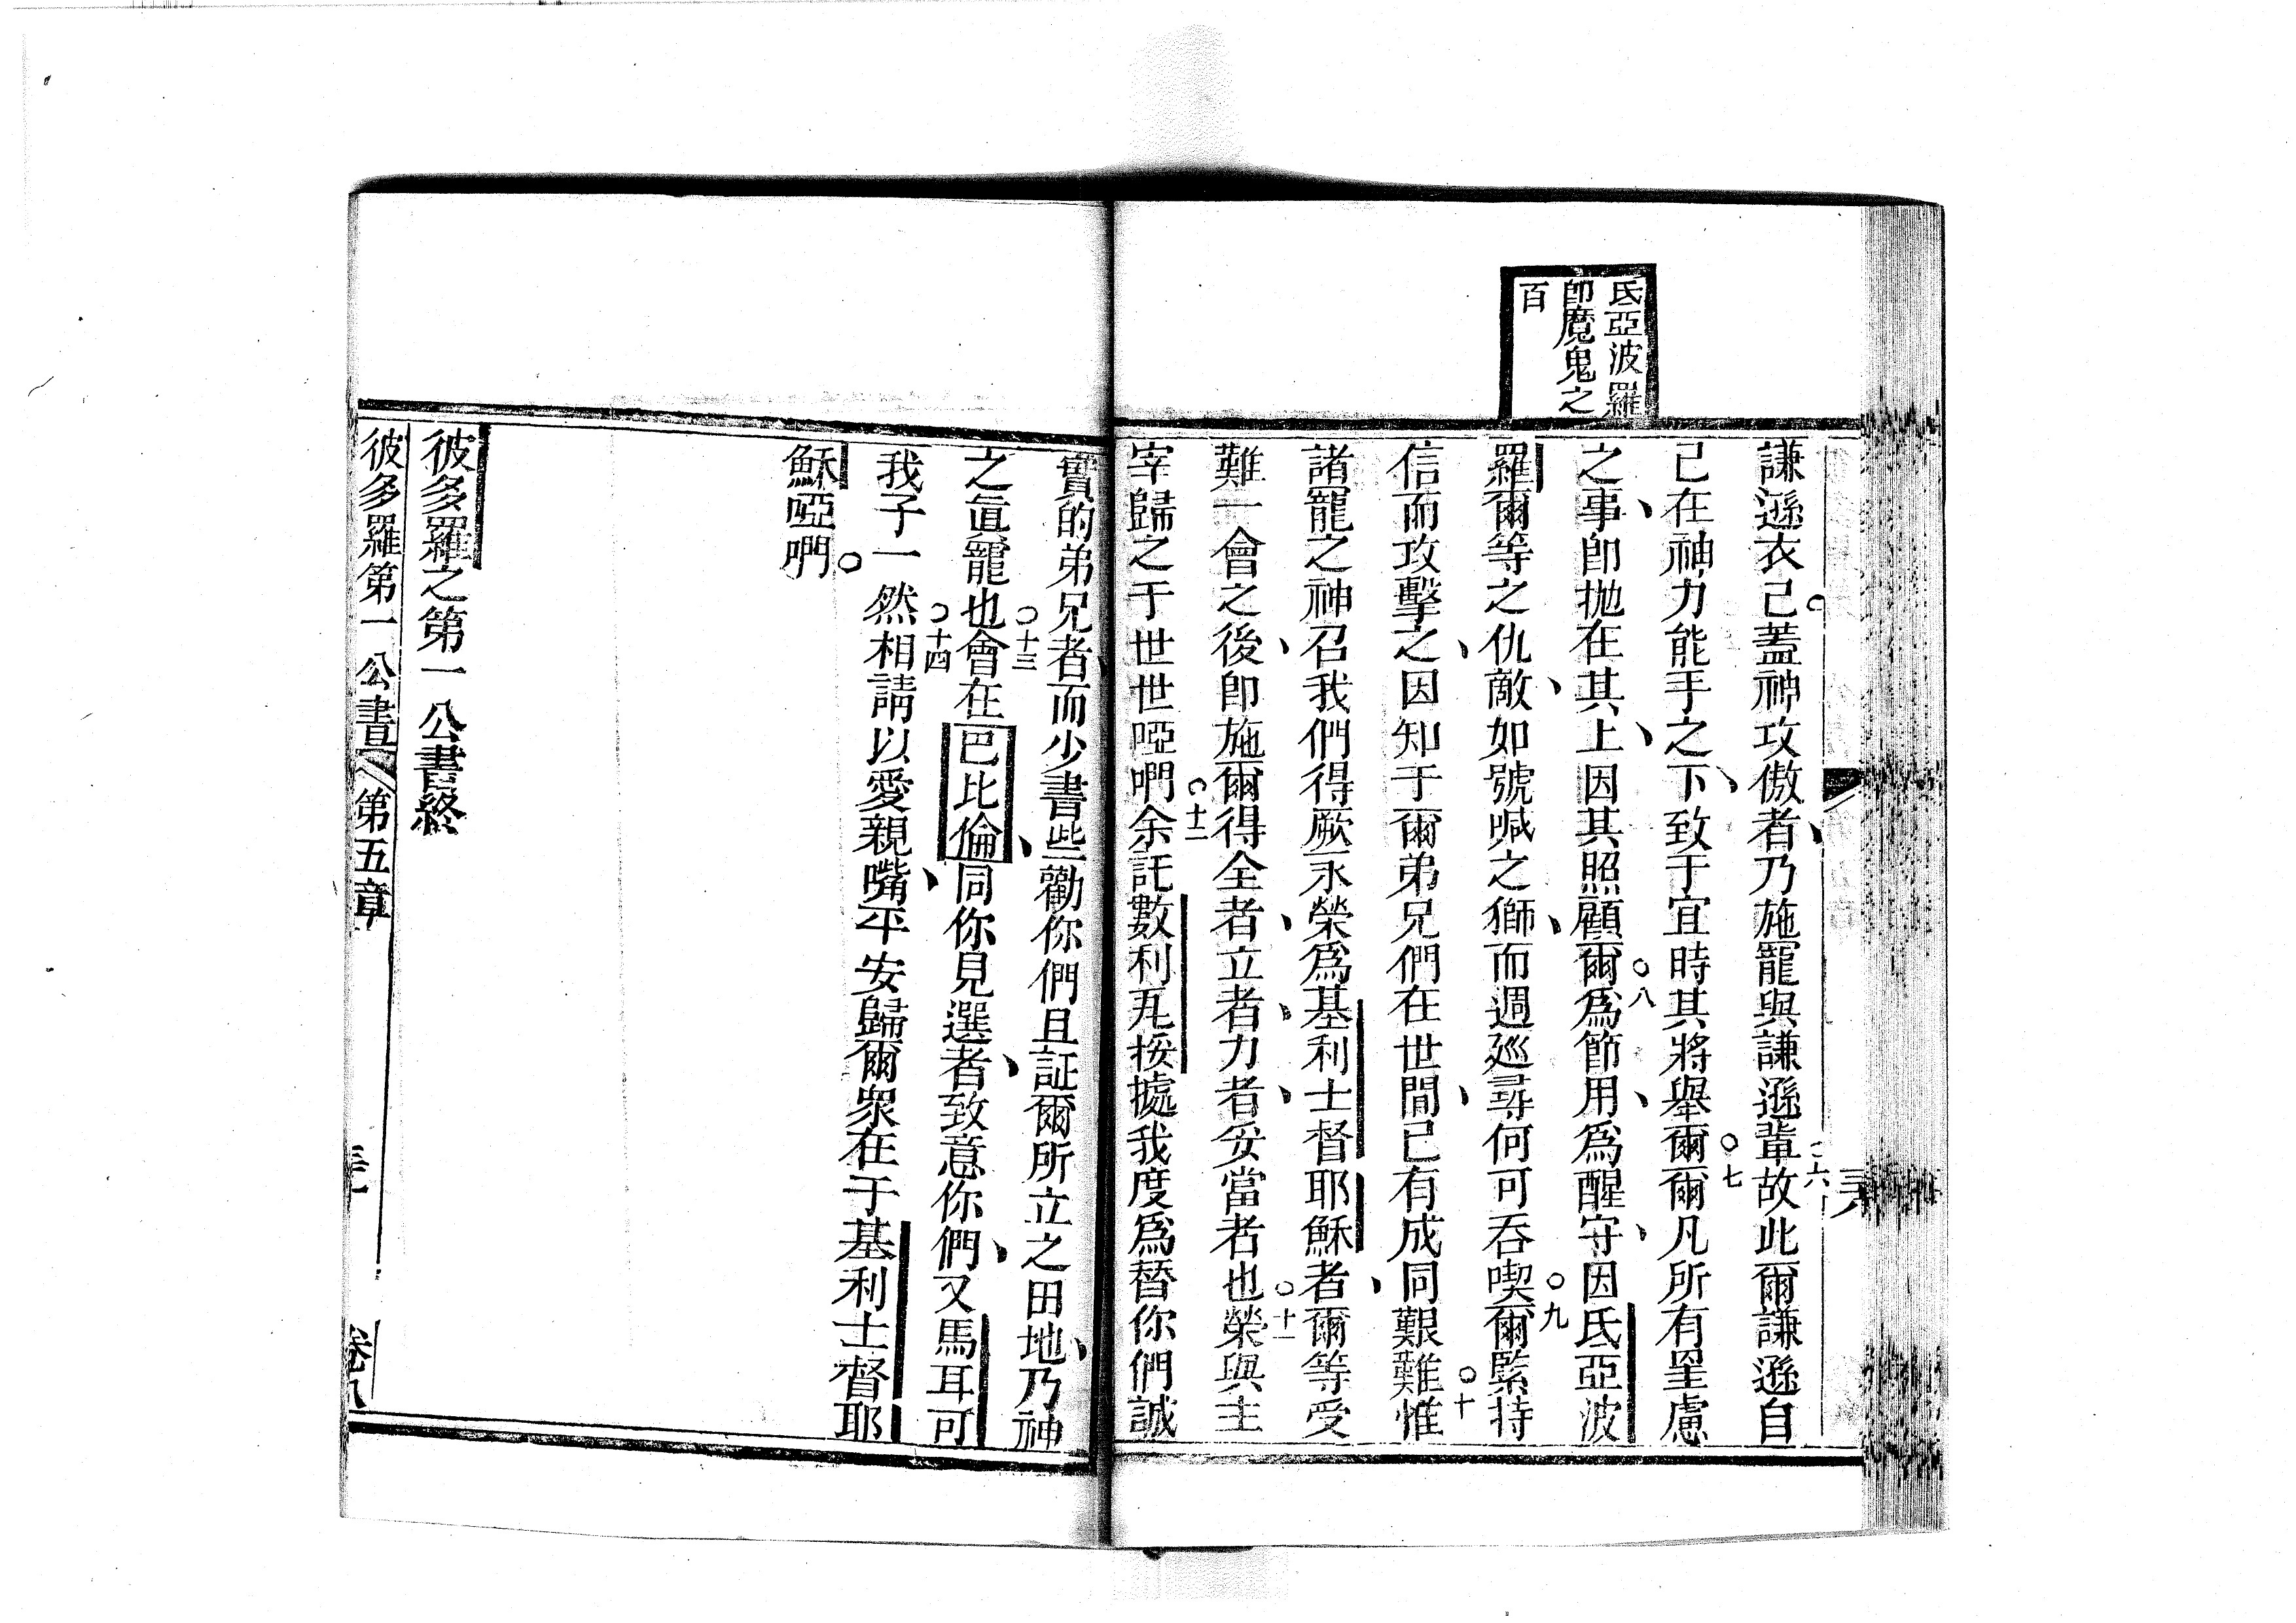 氐亞波羅
卽魔鬼之
百
謙遜衣己蓋神攻傲者乃施寵與謙遜輩故此爾謙遜自
○六
己在神力能手之下致于宜時其將舉爾爾凡所有罣慮
○七
之事卽抛在其上因其照顧爾爲節用爲醒守因氐亞波
○八
羅爾等之仇敵如號喊之獅而週廵尋何可吞喫爾緊持
○九
信而攻擊之因知于爾弟兄們在世間已有成同艱難惟
○十
諸寵之神召我們得厥永榮爲基利士督耶穌者爾等受
難一會之後卽施爾得全者立者力者妥當者也榮與主
○十一
宰歸之于世世啞們余託數利瓦挼據我度爲替你們誠
○十二
實的弟兄者而少書些勸你們且証爾所立之田地乃神
之眞寵也會在巴比倫同你見選者致意你們又馬耳可
○十三
我子一然相請以愛親嘴平安歸爾衆在于基利士督耶
○十四
穌啞們○
彼多羅之第一公書終
彼多羅第一公書 第五章 卷八